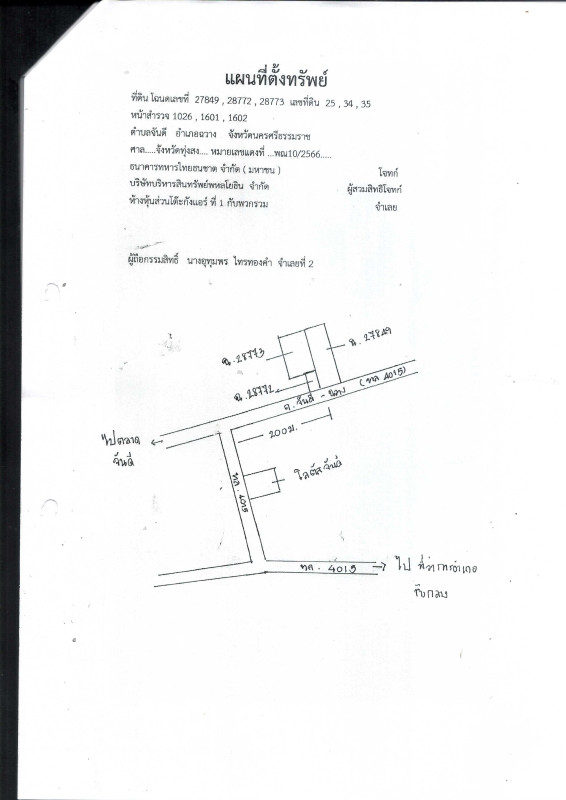 แผนที่ตั้งทรัพย์
ที่ดิน โฉนดเลขที่ 27849 , 28772 , 28773 เลขที่ดิน 25 , 34 , 35
หน้าสำรวจ 1026 , 1601 , 1602
ตำบลจันดี อำเภอฉวาง จังหวัดนครศรีธรรมราช
ศาล.....จังหวัดทุ่งสง.... หมายเลขแดงที่ ...พณ10/2566.....
ธนาคารทหารไทยธนชาต จำกัด ( มหาชน ) โจทก์
บริษัทบริหารสินทรัพย์พหลโยธิน จำกัด ผู้สวมสิทธิโจทก์
ห้างหุ้นส่วนโต๊ะกังแอร์ ที่ 1 กับพวกรวม จำเลย
ผู้ถือกรรมสิทธิ์ นางอุทุมพร ไทรทองคำ จำเลยที่ 2
ฉ.28773
น.27849
ฉ.28772
ถ.จันดี - ฉวาง (ทล 4015)
200ม.
ไปตลาด
จันดี
โลตัสจันดี
ทล. 4015
ทล. 4015
ไป ที่ว่าการอำเภอ